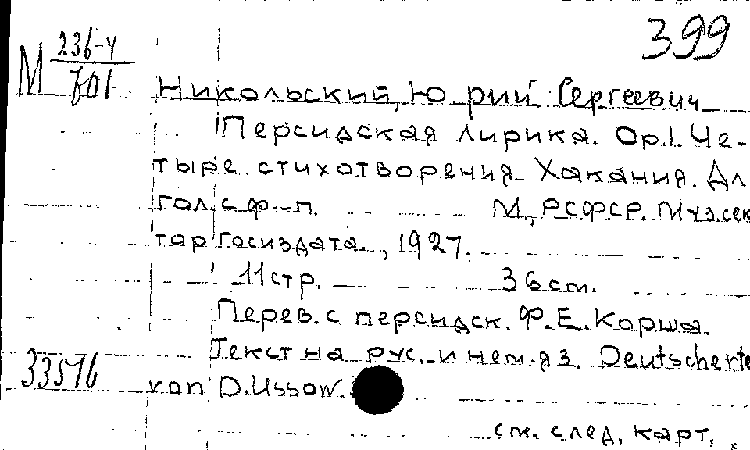 399
М 236-4
701
Никольский, Юрий Сергеевич
Персидская лирика. Op.1. Че-
тыре стихотворения Хакания. Дл
гол. с ф-п. М., РСФСР. Музсек
тор Госиздата, 1927.
11 стр. 36 см.
Перев. с персидск. Ф.Е. Корша.
Текст на рус. и нем. яз. Deutscherte
33516 von D. Ussow.
см. след. карт.